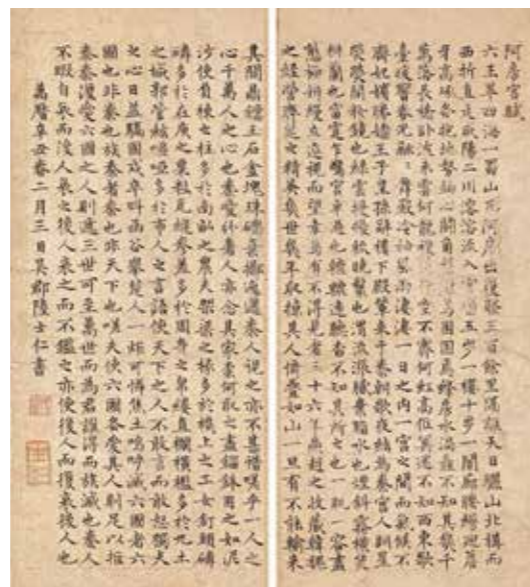 阿房宮賦
六王畢四海一蜀山兀阿房出覆壓三百餘里隔離天日驪山北構而
西折直走咸陽二川溶溶流入宮墻五步一樓十步一閣廊腰縵迴簷
牙高啄各抱地勢鈎心鬪角盤盤焉囷囷焉蜂房水渦矗不知其幾千
萬落長橋臥波未雲何龍複道行空不霽何虹高低冥迷不知西東歌
臺暖響春光融融舞殿冷袖風雨淒淒一日之內一宮之間而氣候不
齊妃嬪媵嬙王子皇孫辭樓下殿輦來于秦朝歌夜絃為秦宮人明星
熒熒開粧鏡也綠雲擾擾梳曉鬟也渭流漲膩棄脂水也煙斜霧橫焚
椒蘭也雷霆乍驚宮車過也轆轆遠聽杳不知其所之也一肌一容盡
態極妍縵立遠視而望幸焉有不得見者三十六年燕趙之收藏韓魏
之經營齊楚之精英幾世幾年取掠其人倚疊如山一旦有不能輸來
其間鼎鐺玉石金塊珠礫棄擲邐迤秦人視之亦不甚惜嗟乎一人之
心千萬人之心也秦愛紛奢人亦念其家奈何取之盡錙銖用之如泥
沙使負棟之柱多於南畝之農夫架梁之椽多於機上之工女釘頭磷
磷多於在庾之粟粒瓦縫參差多於周身之帛縷直欄橫檻多於九土
之城郭管絃嘔啞多於市人之言語使天下之人不敢言而敢怒獨夫
之心日益驕固戍卒叫函谷舉楚人一炬可憐焦土嗚呼滅六國者六
國也非秦也族秦者秦也非天下也嗟夫使六國各愛其人則足以拒
秦秦復愛六國之人則遞三世可至萬世而為君誰得而族滅也秦人
不暇自哀而後人哀之後人哀之而不鑑之亦使後人而復哀後人也
萬曆辛丑春二月三日吳郡陸士仁書